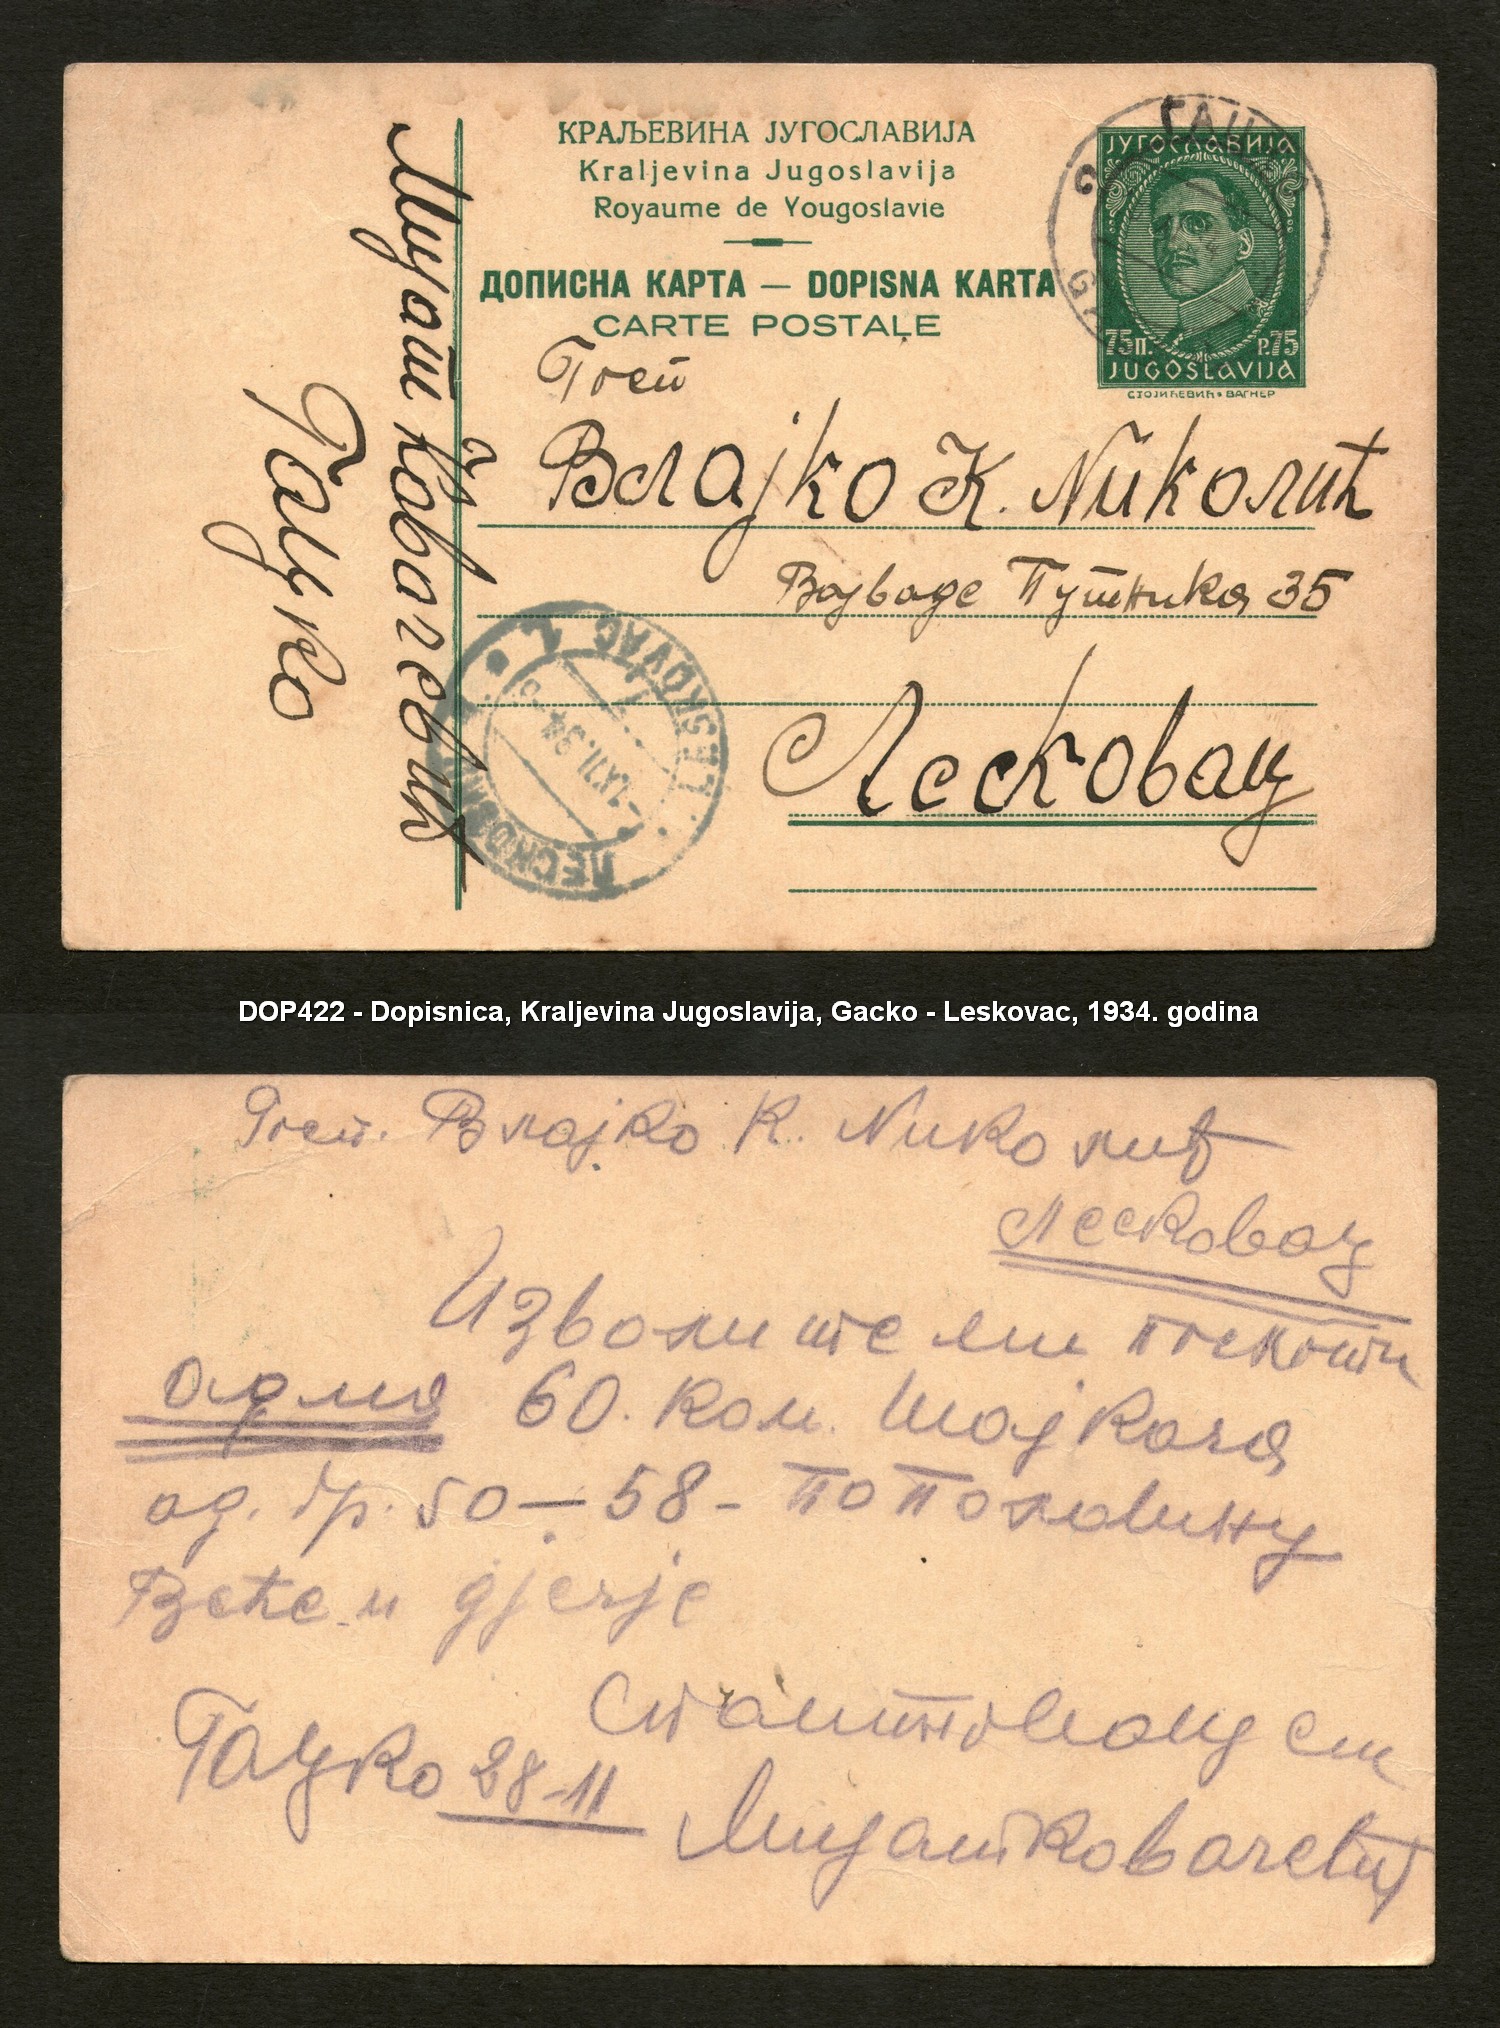 КРАЉЕВИНА ЈУГОСЛАВИЈА
Kraljevina Jugoslavija
Royaume de Yougoslavie
ДОПИСНА КАРТА — DOPISNA KARTA
CARTE POSTALE
ЈУГОСЛАВИЈА
75 П. P. 75
JUGOSLAVIJA
СТОЈИЋЕВИЋ • ВАГНЕР
Мијат Ковачевић
Гацко
Госп
Влајко К. Николић
Војводе Путника 35
Лесковац
LESKOVAC 2
-1.XII.34-8
ЛЕСКОВАЦ
DOP422 - Dopisnica, Kraljevina Jugoslavija, Gacko - Leskovac, 1934. godina
Госп. Влајко К. Николић
Лесковац
Изволите ми послати
одма 60. ком. Шајкача
од. бр. 50 — 58 - по половину
Веће и дјечје
Са штовањем
Гацко 28-11
Мијат Ковачевић